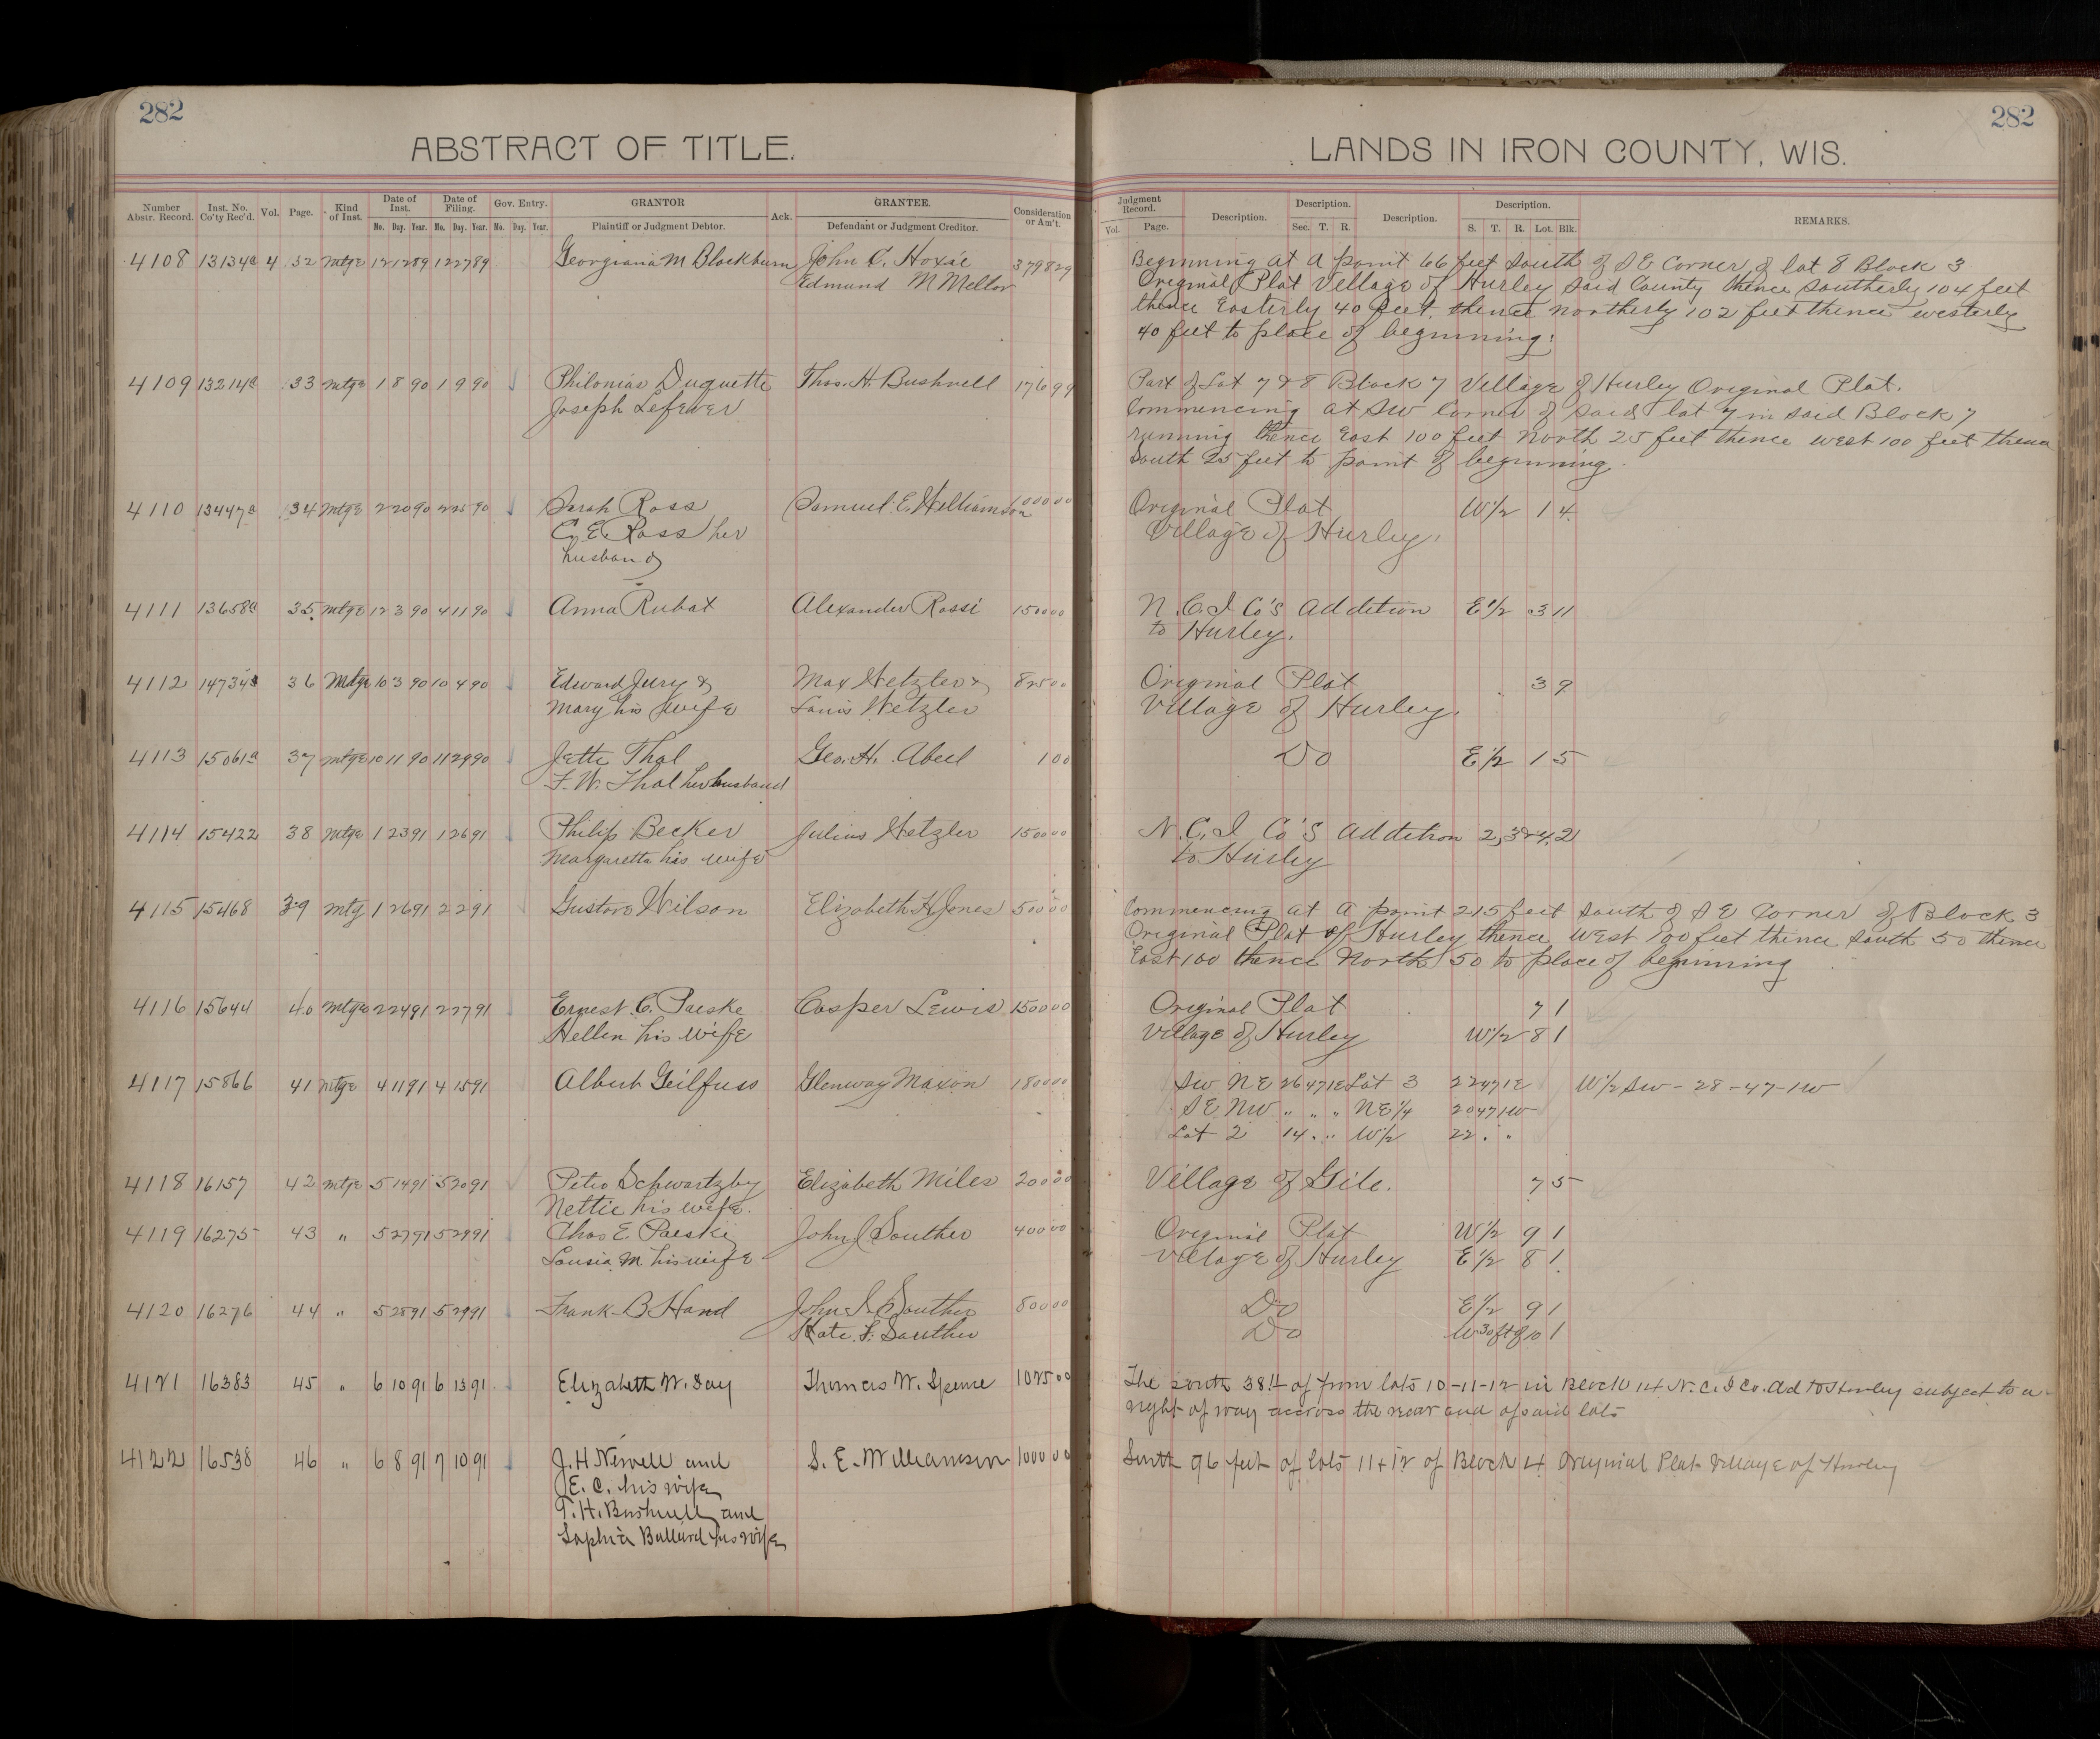 282
282
ABSTRACT OF TITLE.
LANDS IN IRON COUNTY, WIS.
Number Abstr. Record. Inst. No. Co'ty Rec'd. Vol. Page. Kind of Inst. Date of Inst. Mo. Day. Year. Date of Filing. Mo. Day. Year. Gov. Entry. Mo. Day. Year. GRANTOR Plaintiff or Judgment Debtor. Ack. GRANTEE. Defendant or Judgment Creditor. Consideration or Am't.
Judgment Record. Vol. Page. Description. Description. Sec. T. R. Description. Description. S. T. R. Lot. Blk. REMARKS.
4108 13134a 4 32 mtge 12 12 89 12 27 89 Georgiana M Blackburn John C. Hoxie 3798 29 Beginning at a point 66 feet South of SE Corner of lot 8 Block 3
Edmund M Mellor Original Plat Village of Hurley said County thence Southerly 104 feet
thence Easterly 40 feet, thence northerly 102 feet thence westerly
40 feet to place of beginning.
4109 13214a 33 mtge 1 8 90 1 9 90 Philonias Duquette Thos. H. Bushnell 176 99 Part of Lot 7 & 8 Block 7 Village of Hurley Original Plat.
Joseph Lefever Commencing at SW Corner of said lot 7 in said Block 7
running thence East 100 feet North 25 feet thence west 100 feet thence
South 25 feet to point of beginning.
4110 13447a 34 mtge 2 20 90 2 25 90 Sarah Ross Samuel E. Williamson 1000 00 Original Plat W 1/2 1 4
C. E. Ross her Village of Hurley.
husband
4111 13658a 35 mtge 12 3 90 4 11 90 Anna Rubat Alexander Rossi 1500 00 N. C. I Co's Addition E 1/2 3 11
to Hurley.
4112 14734 36 Mtge 10 3 90 10 4 90 Edward Jury & Max Hetzler & 825 00 Original Plat 3 9
Mary his wife Louis Hetzler Village of Hurley.
4113 15061a 37 mtge 10 11 90 11 29 90 Jette Thal Geo. H. Abeel 1 00 Do E 1/2 1 5
F. W. Thal her husband
4114 15422 38 Mtge 1 23 91 1 26 91 Philip Becker Julius Hetzler 1500 00 N. C. I Co's Addition 2, 3 & 4, 2
Margaretta his wife to Hurley
4115 15468 39 Mtg 1 26 91 2 2 91 Gustave Wilson Elizabeth H Jones 500 00 Commencing at a point 215 feet South of SE Corner of Block 3
Original Plat of Hurley thence West 100 feet thence South 50 thence
East 100 thence North 50 to place of beginning
4116 15644 40 Mtge 2 24 91 2 27 91 Ernest C. Paeske Casper Lewis 1500 00 Original Plat 7 1
Hellen his wife Village of Hurley W 1/2 8 1
4117 15866 41 mtge 4 11 91 4 15 91 Albert Geilfuss Glenway Maxon 1800 00 SW NE 26 47 1E Lot 3 22 47 1E W 1/2 SW - 28 - 47 - 1W
SE NW " " " NE 1/4 20 47 1W
Lot 2 14 " " W 1/2 22 " "
4118 16157 42 mtge 5 14 91 5 20 91 Peter Schwartzby Elizabeth Miles 200 00 Village of Gile. 7 5
Nettie his wife.
4119 16275 43 " 5 27 91 5 29 91 Chas E. Paeske John J Souther 400 00 Original Plat W 1/2 9 1
Lousia M. his wife Village of Hurley E 1/2 8 1
4120 16276 44 " 5 28 91 5 29 91 Frank B Hand John S Souther 800 00 Do E 1/2 9 1
Kate F. Souther Do W 30 ft of 10 1
4121 16383 45 " 6 10 91 6 13 91 Elizabeth W. Day Thomas W. Spence 1025 00 The South 38 ft of from lots 10-11-12 in Block 14 N. C. I Co. Ad to Hurley subject to a
right of way accross the rear end of said lots
4122 16538 46 " 6 8 91 7 10 91 J. H Newell and S. E. Williamson 1000 00 South 96 feet of lots 11 + 12 of Block 4 Original Plat Village of Hurley
E. C. his wife
T. H. Bushnell and
Sophia Ballard his wife